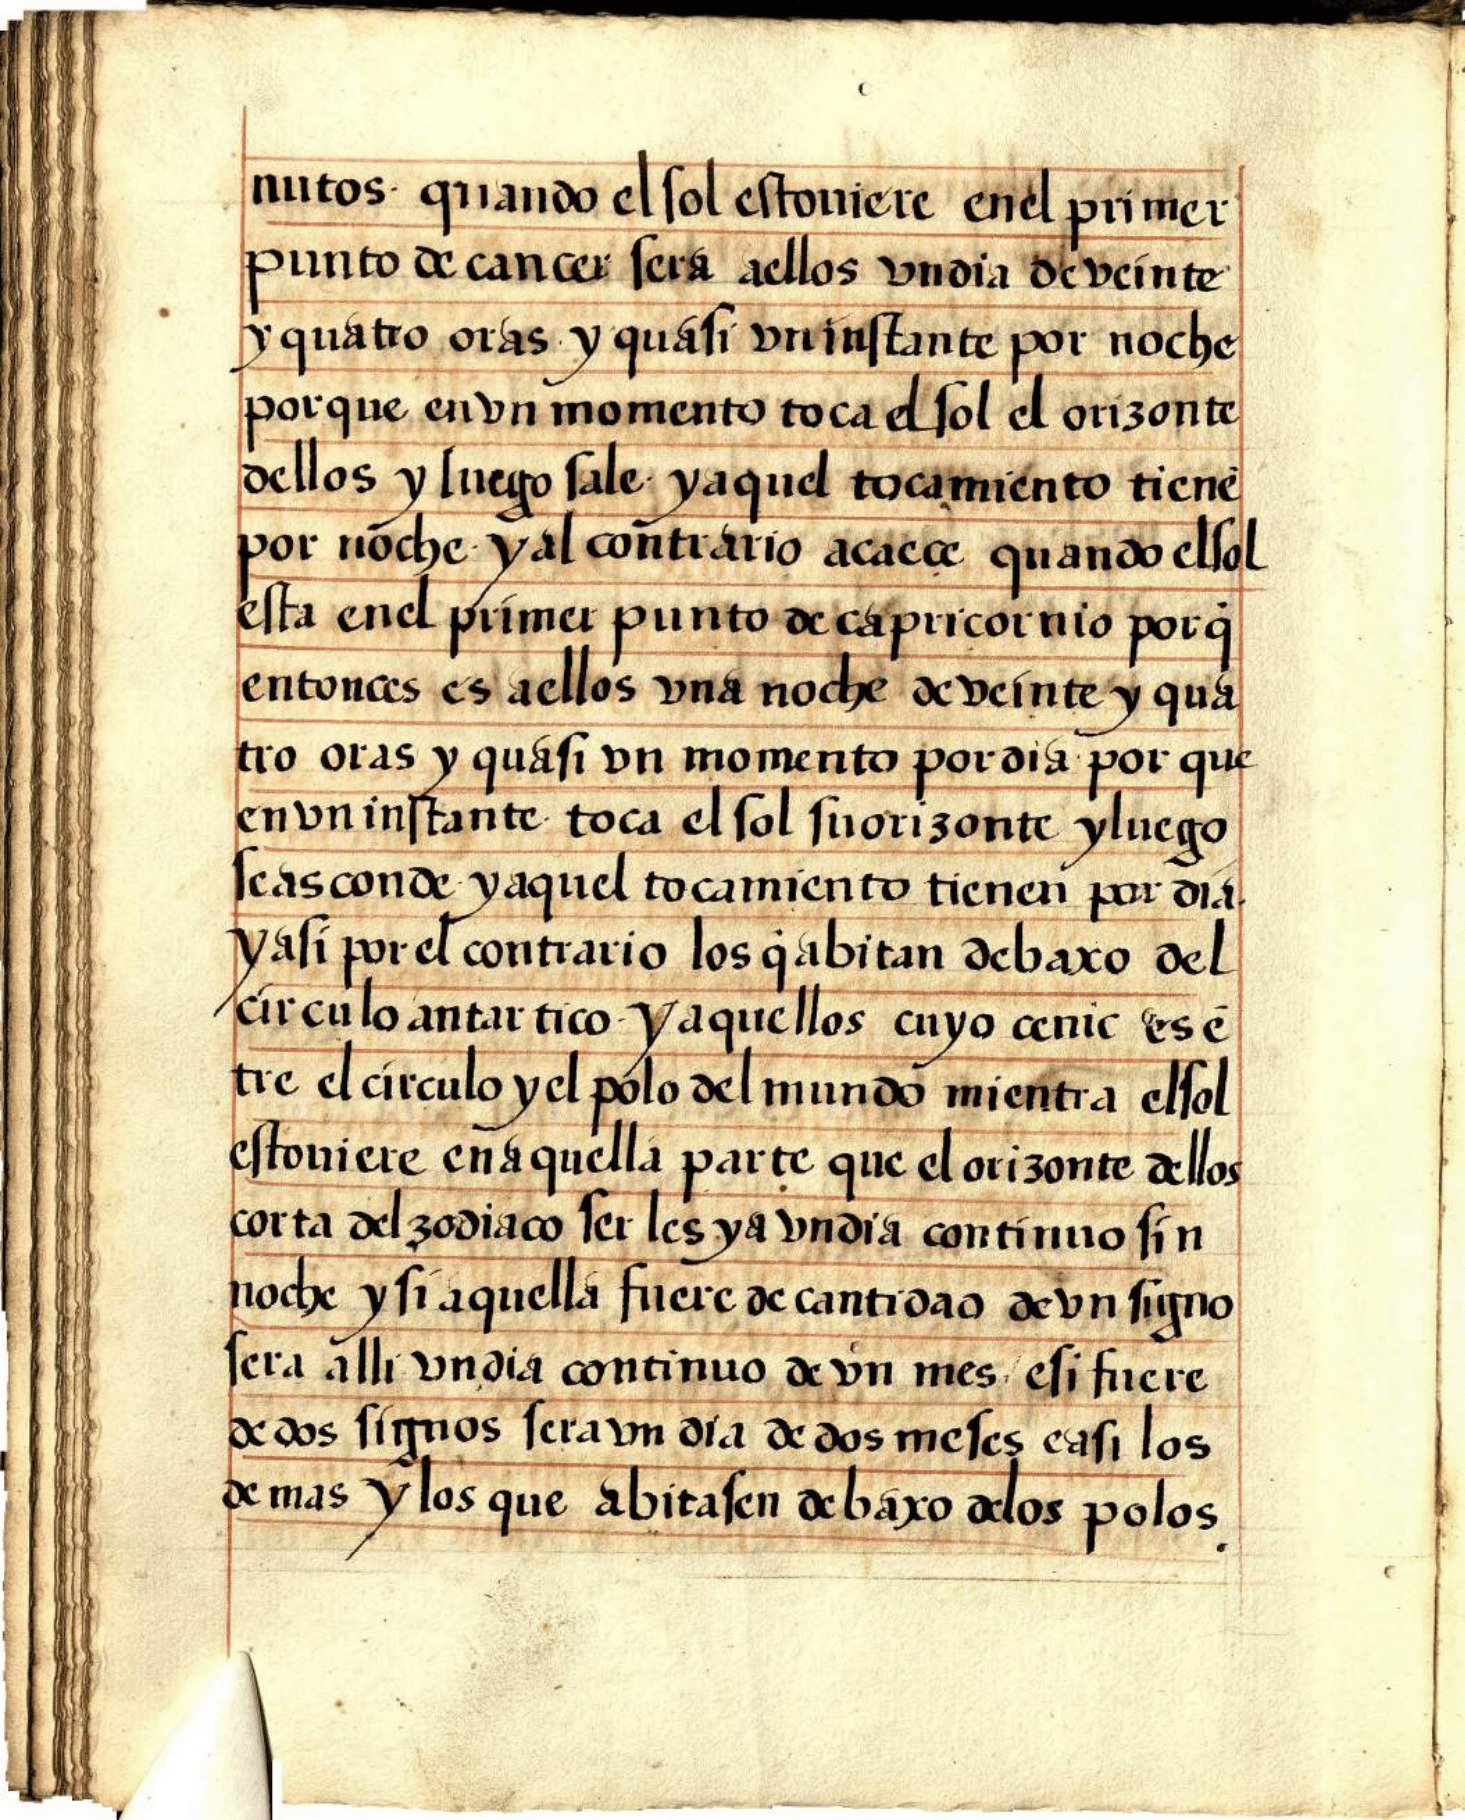 nutos· quando el sol estouiere enel primer
punto de cancer sera aellos vndia de veinte
y quatro oras · y quasi vn instante por noche
porque en vn momento toca el sol el orizonte
dellos y luego sale· yaquel tocamiento tienē
por noche · yal contrario acaece quando elsol
esta enel primer punto de capricornio porq̇
entonces es aellos vna noche de veinte y qua
tro oras y quasi vn momento por dia · por que
en vn instante toca el sol suorizonte yluego
seasconde · yaquel tocamiento tienen por dia.
yasi por el contrario los q̇ abitan debaxo del
circulo antartico · yaquellos cuyo cenic es ē
tre el circulo y el polo del mundo mientra elsol
estouiere enaquella parte que el orizonte dellos
corta del zodiaco ser les ya vndia continuo sin
noche y si aquella fuere de cantidad de vn signo
sera alli vndia continuo de vn mes / esi fuere
de dos signos sera vn dia de dos meses easi los
demas y los que abitasen debaxo delos polos.